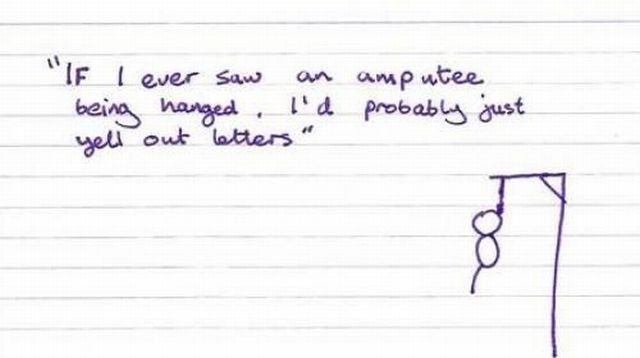 "IF I ever saw an amputee
being hanged, I'd probably just
yell out letters"